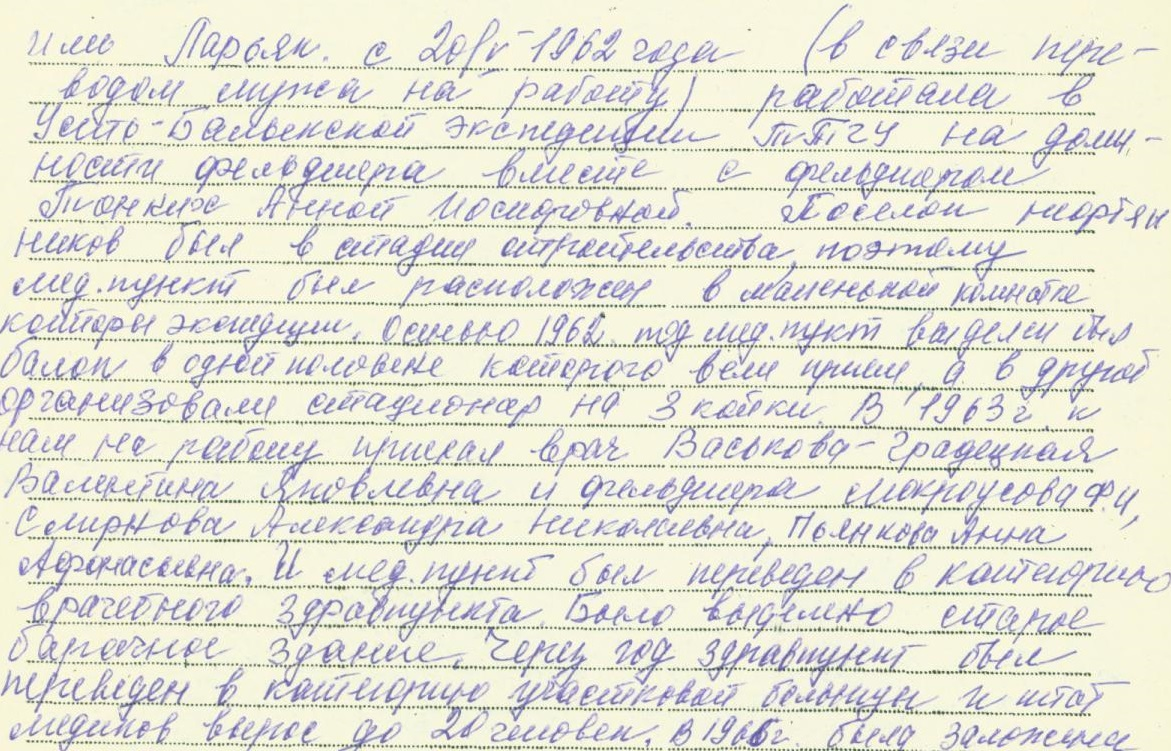 или Ларьяк. с 20/V-1962 года (в связи пере-
водом мужа на работу) работала в
Усть-Балыкской экспедиции ТТГУ на долж-
ности фельдшера вместе с фельдшером
Тонких Анной Иосифовной. Поселок нефтян
ников был в стадии строительства, поэтому
мед.пункт был расположен в маленькой комнатке
конторы экспедиции. Осенью 1962 под мед.пукт выделен был
балок в одной половине которого вели прием, а в другой
организовали стационар на 3 койки. В 1963 г. к
нам на работу приехал врач Васькова-Градецкая
Валентина Яковлевна и фельдшера Мокроусова Ф.И,
Смирнова Александра Николаевна, Пьянкова Анна
Афонасьевна. И мед.пункт был переведен в категорию
врачебного здравпункта. Было выделено старое
барачное здание. Через год здравпункт был
переведен в категорию участковой больницы и штат
медиков вырос до 20 человек. В 1966г. была заложена